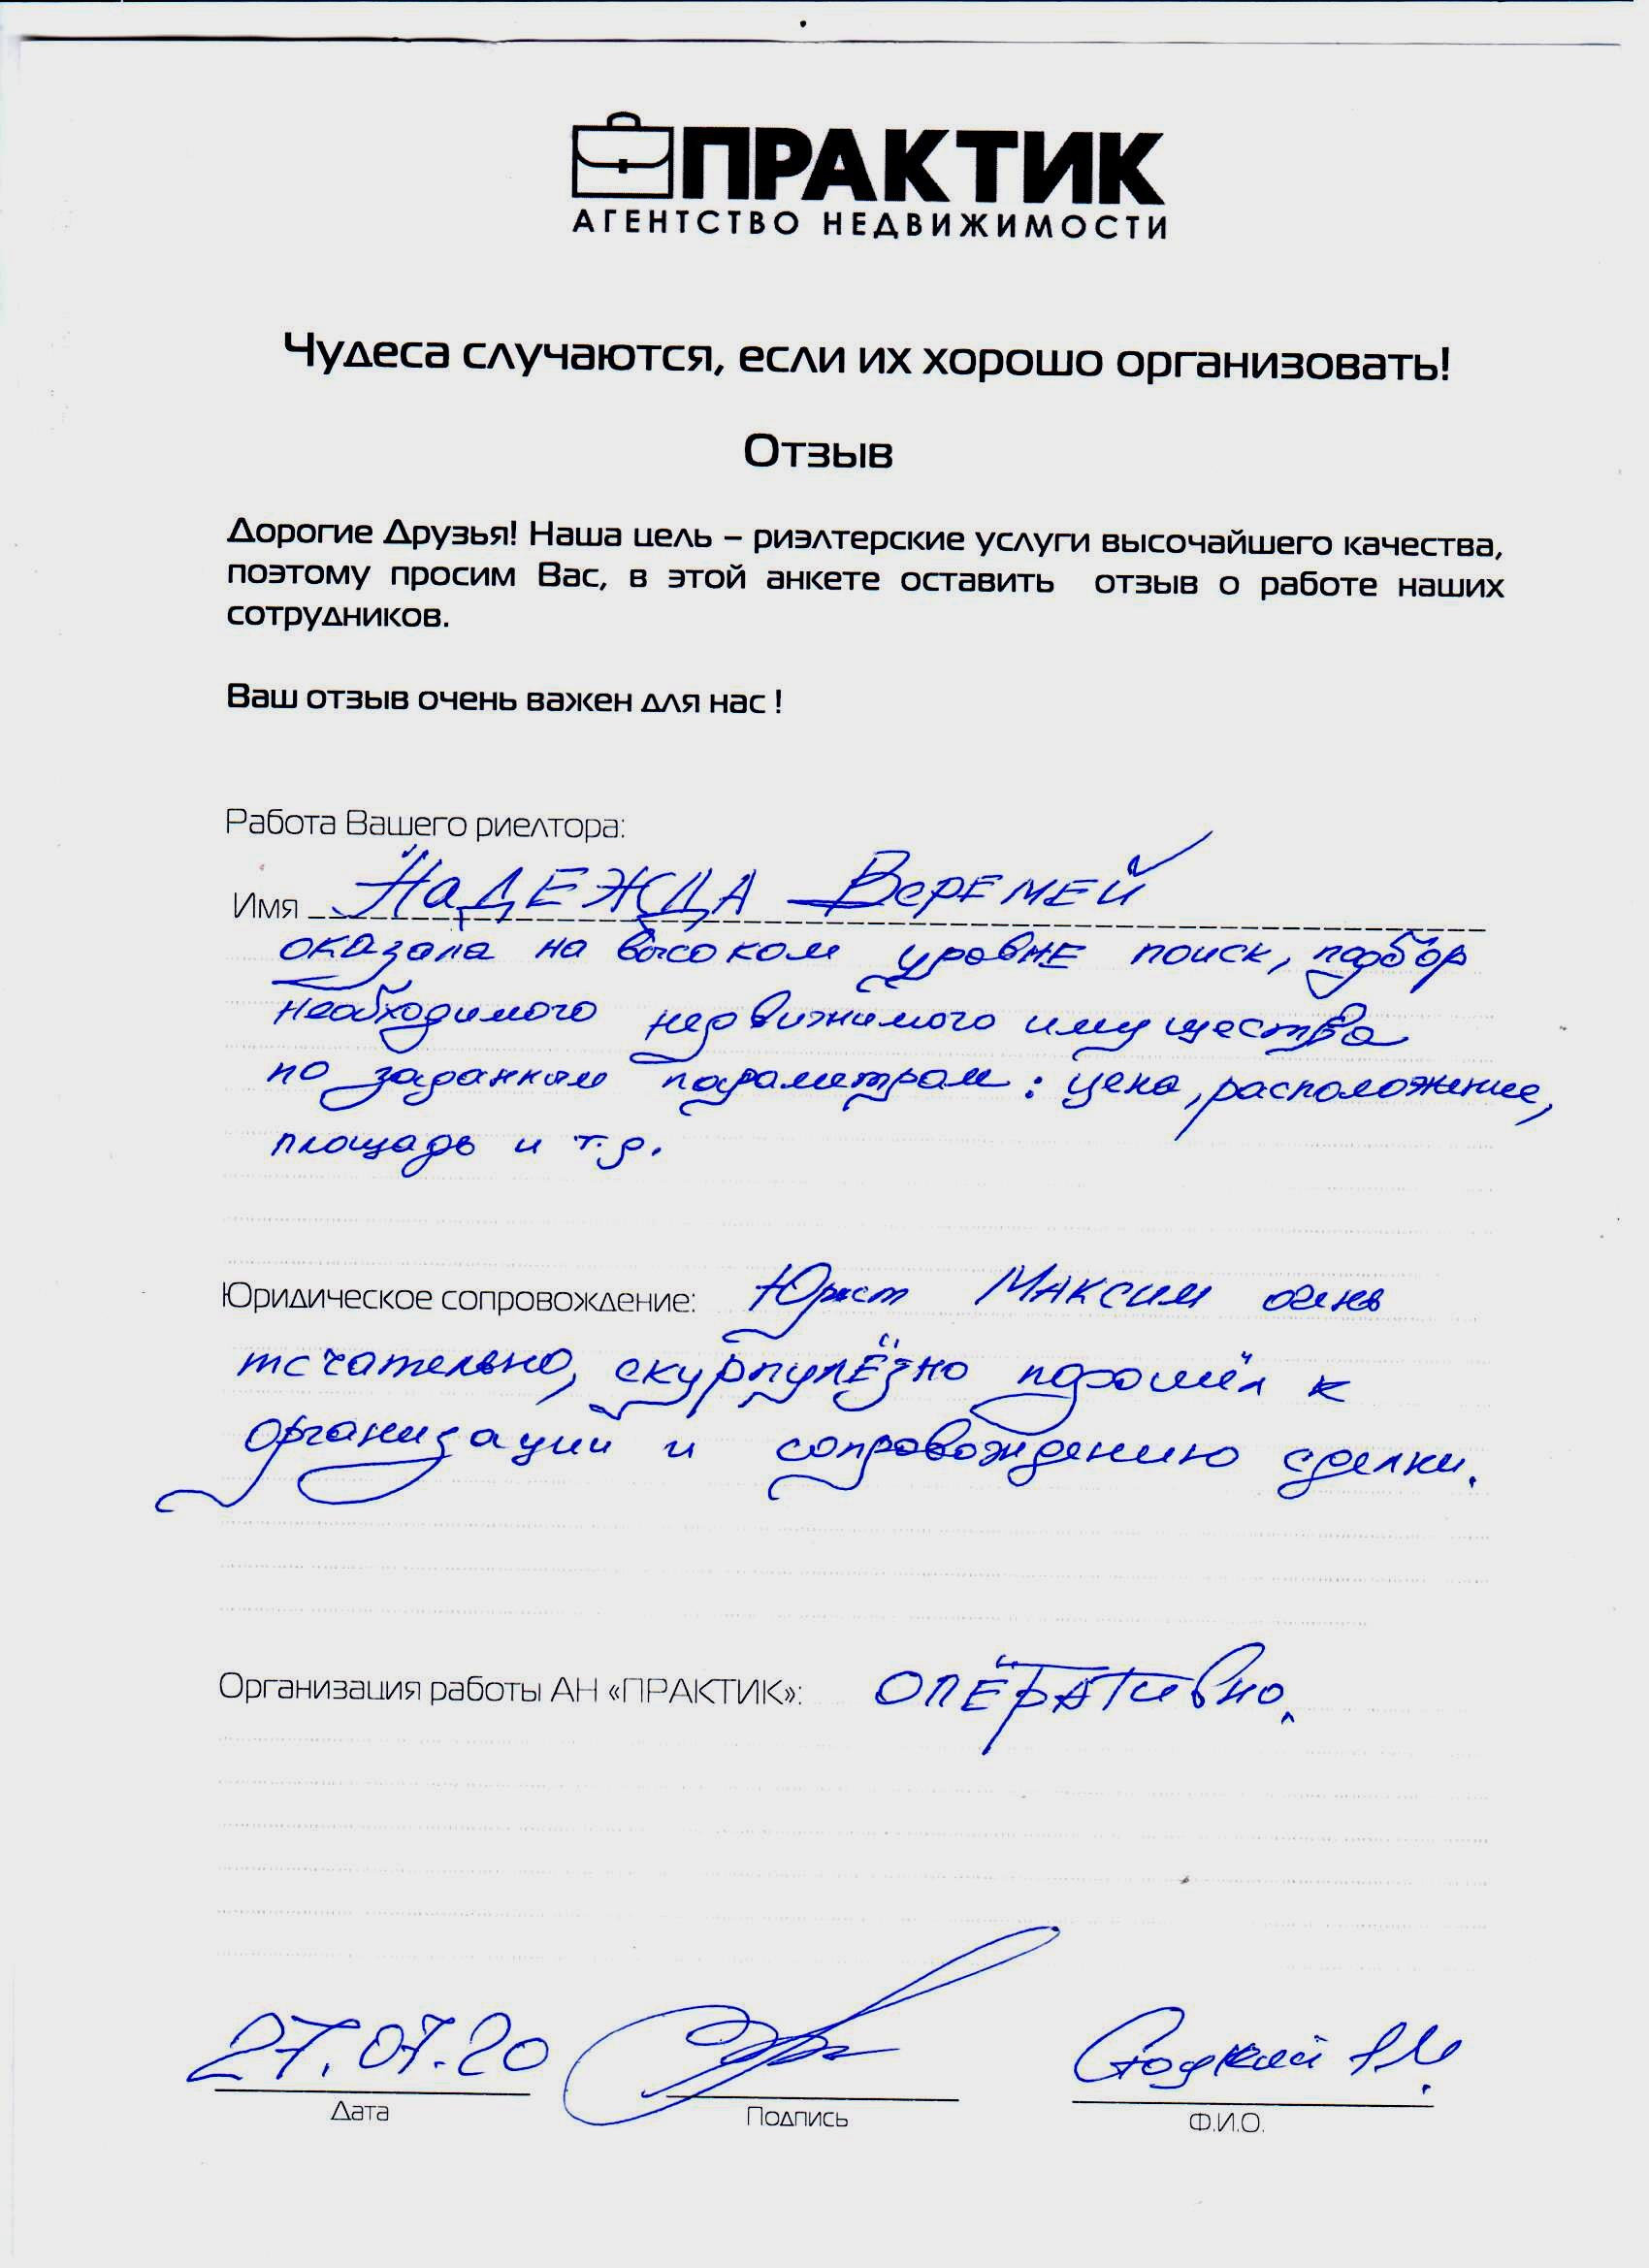 ПРАКТИК
АГЕНТСТВО НЕДВИЖИМОСТИ
Чудеса случаются, если их хорошо организовать!
Отзыв
Дорогие Друзья! Наша цель – риэлтерские услуги высочайшего качества,
поэтому просим Вас, в этой анкете оставить отзыв о работе наших
сотрудников.
Ваш отзыв очень важен для нас !
Работа Вашего риелтора:
Имя НаДЕЖДА ВеРЕМЕЙ
оказала на высоком уровнЕ поиск, подбор
необходимого недвижимого имущества
по заданным параметрам: цена, расположение,
площадь и т.д.
Юридическое сопровождение: Юрист Максим очень
тсчательно, скурпулёзно подошёл к
организации и сопровождению сделки.
Организация работы АН «ПРАКТИК»: опёративно.
27.07.20
Дата
Подпись
Ф.И.О.